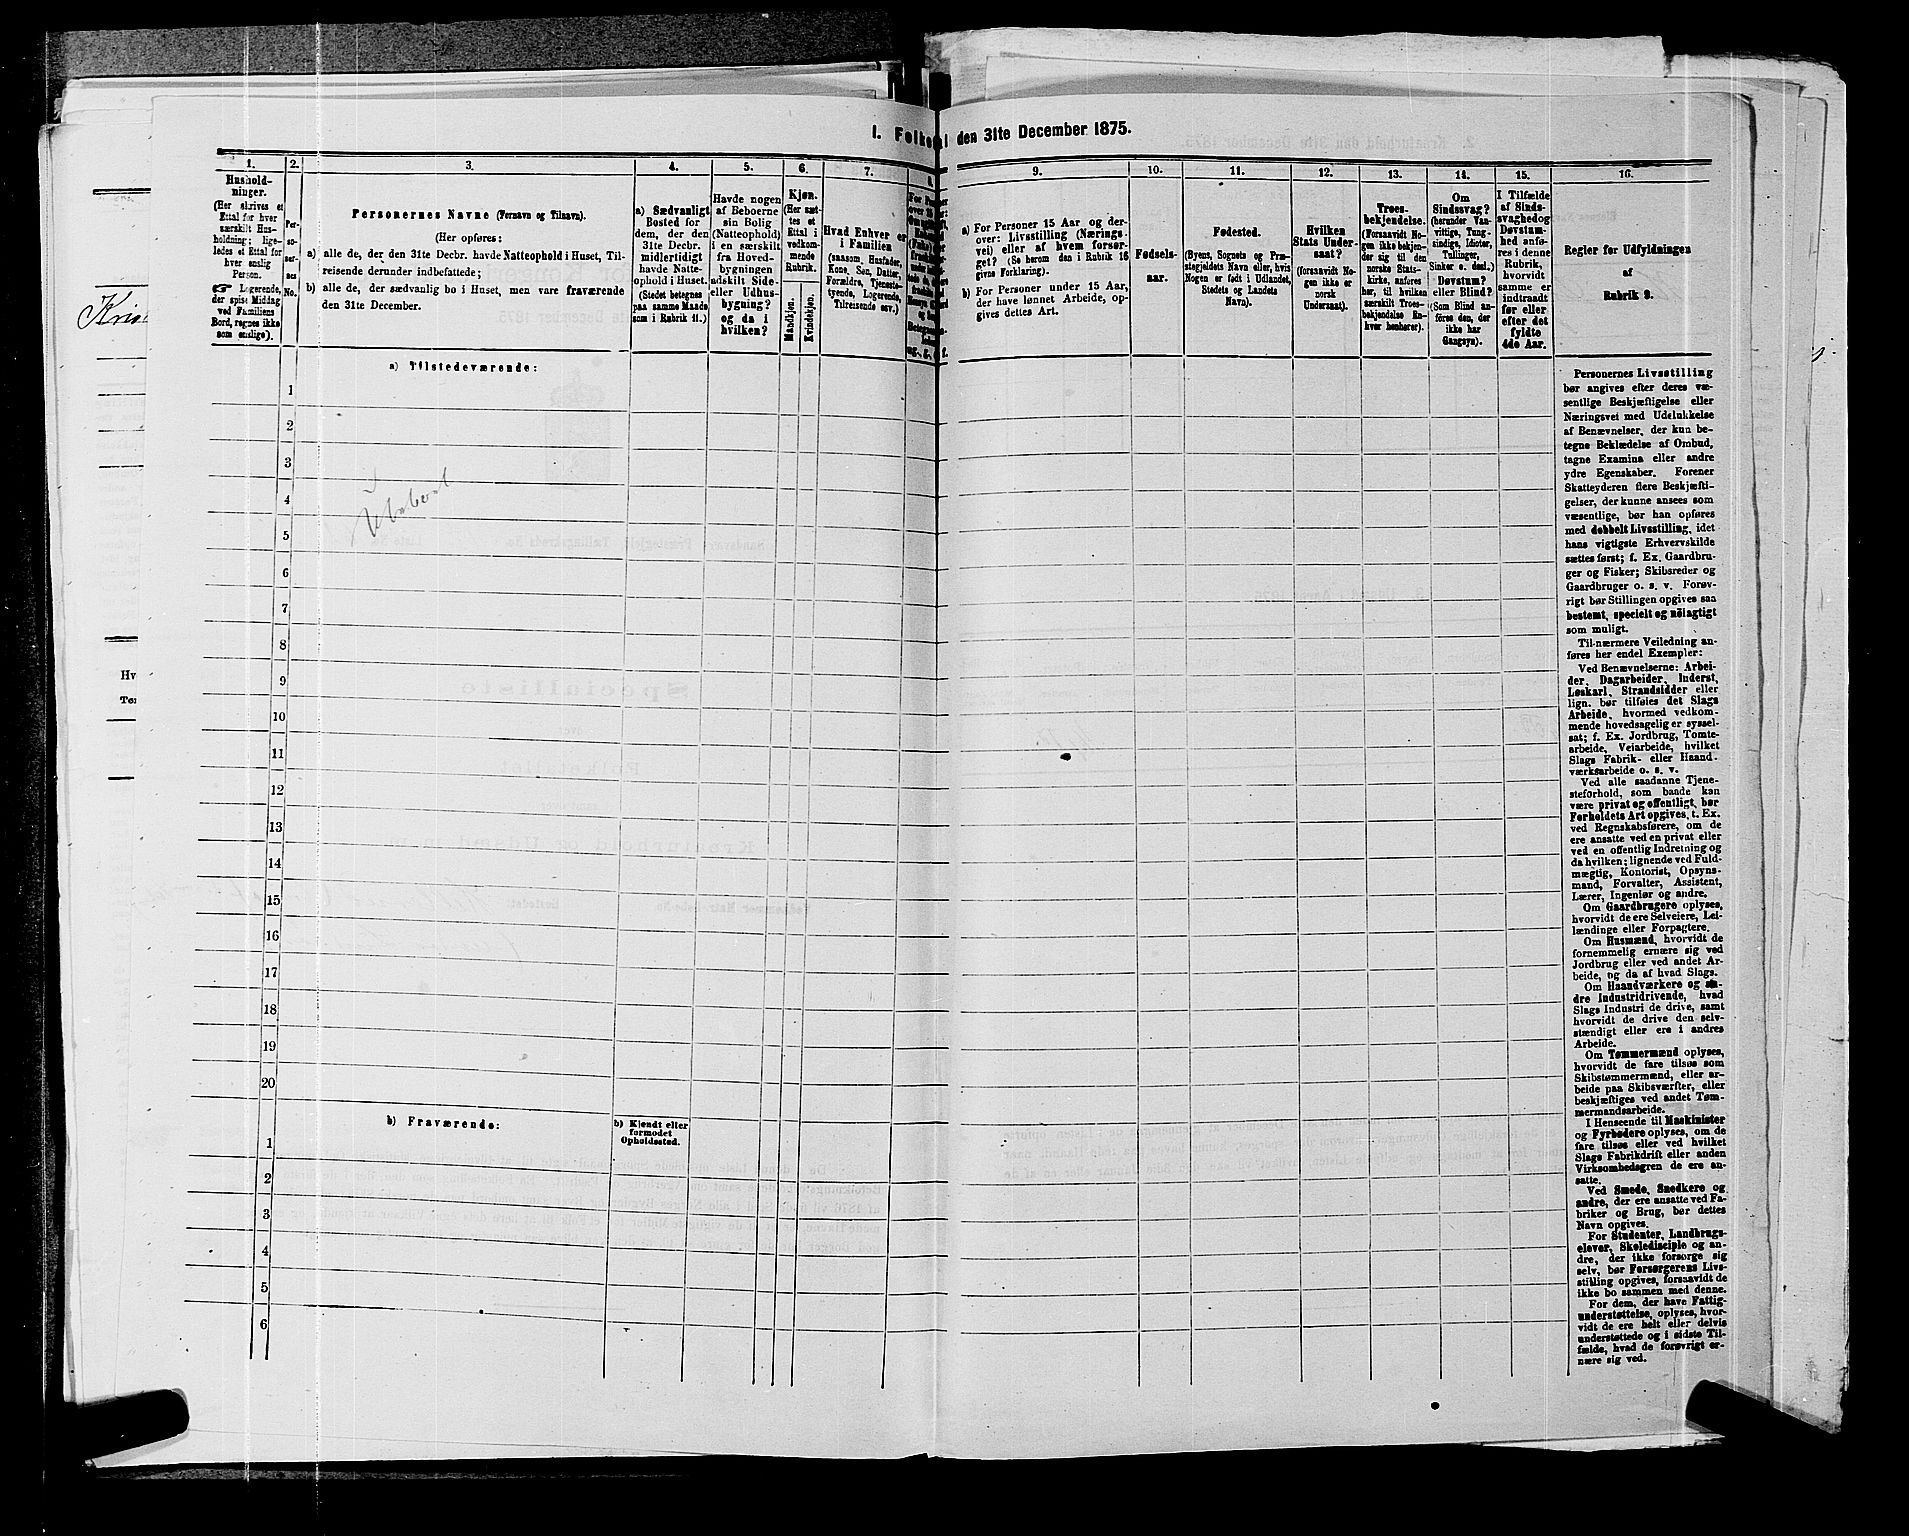 I. Folketal den 31te December 1875.
1.
2.
3.
4.
5.
6.
7.
8.
9.
10.
11.
12.
13.
14.
15.
16.
Hushold-
ninger.
(Her skrives et
Ettal for hver
særskilt Hus-
holdning; lige-
ledes et Ettal for
hver enslig
Person.
☞ Logerende,
der spise Middag
ved Familiens
Bord, regnes ikke
som enslige).
Per-
so-
ner-
nes
No.
Personernes Navne (Fornavn og Tilnavn).
(Her opføres:
a) alle de, der den 31te Decbr. havde Natteophold i Huset, Til-
reisende derunder indbefattede;
b) alle de, der sædvanlig bo i Huset, men vare fraværende
den 31te December.
a) Sædvanligt
Bosted for
dem, der den
31te Decbr.
midlertidigt
havde Natte-
ophold i Huset.
(Stedet betegnes
paa samme Maade
som i Rubrik 11.)
Havde nogen
af Beboerne
sin Bolig
(Natteophold)
i en særskilt
fra Hoved-
bygningen
adskilt Side-
eller Udhus-
bygning?
og da i
hvilken?
Kjøn.
(Her sæt-
tes et
Ettal i
vedkom-
mende
Rubrik.
Mandkjøn.
Kvindekjøn.
Hvad Enhver er
i Familien
(saasom, Husfader,
Kone, Søn, Datter,
Forældre, Tjeneste-
tyende, Logerende,
Tilreisende osv.)
a) For Personer 15 Aar og der-
over: Livsstilling (Nærings-
vei) eller af hvem forsør-
get? (Se herom den i Rubrik 16
givne Forklaring).
b) For Personer under 15 Aar,
der have lønnet Arbeide, op-
gives dettes Art.
Fødsels-
aar.
Fødested.
(Byens, Sognets og Præ-
stegjeldets Navn eller, hvis
Nogen er født i Udlandet,
Stedets og Landets
Navn).
Hvilken
Stats Under-
saat?
(forsaavidt No-
gen ikke er
norsk
Undersaat).
Troes-
bekjendelse.
(Forsaavidt No-
gen ikke bekjen-
der sig til den
norske Stats-
kirke, anføres
her, til hvilken
særskilt Troes-
bekjendelse En-
hver henhører).
Om
Sindssvag?
(herunder Van-
vittige, Tung-
sindige, Idioter,
Tullinger,
Sinker o. desl.)
Døvstum?
eller Blind?
(Som Blind an-
føres den, der
ikke har
Gangsyn).
I Tilfælde
af Sinds-
svaghed og
Døvstum-
hed anfø-
res i denne
Rubrik,
hvorvidt
samme er
indtraadt
før eller
efter det
fyldte
4de Aar.
Regler for Udfyldningen
af
Rubrik 9.
a) Tilstedeværende:
1
2
3
4
5
6
7
8
9
10
11
12
13
14
15
16
17
18
19
20
Ubeboet
b) Fraværende:
b) Kjendt eller
formodet
Opholdssted.
1
2
3
4
5
6
Personernes Livsstilling
bør angives efter deres væ-
sentlige Beskjæftigelse eller
Næringsvei med Udelukkelse
af Benævnelser, der kun be-
tegne Beklædelse af Ombud,
tagne Examina eller andre
ydre Egenskaber. Forener
Skatteyderen flere Beskjæfti-
gelser, der kunne ansees som
væsentlige, bør han opføres
med dobbelt Livsstilling, idet
hans vigtigste Erhvervskilde
sættes først; f. Ex. Gaardbru-
ger og Fisker; Skibsreder og
Gaardbruger o. s. v. Forøv-
rigt bør Stillingen opgives saa
bestemt, specielt og nøiagtigt
som muligt.
Til nærmere Veiledning an-
føres her endel Exempler:
Ved Benævnelserne: Arbei-
der, Dagarbeider, Inderst,
Løskarl, Strandsidder eller
lign. bør tilføies det Slags
Arbeide, hvormed vedkom-
mende hovedsagelig er syssel-
sat; f. Ex. Jordbrug, Tomte-
arbeide, Veiarbeide, hvilket
Slags Fabrik- eller Haand-
værksarbeide o. s. v.
Ved alle saadanne Tjene-
steforhold, som baade kan
være privat og offentligt, bør
Forholdets Art opgives, t. Ex.
ved Regnskabsførere, om de
ere ansatte ved en privat eller
ved en offentlig Indretning og
da hvilken; lignende ved Fuld-
mægtig, Kontorist, Opsyns-
mand, Forvalter, Assistent,
Lærer, Ingeniør og andre.
Om Gaardbrugere oplyses,
hvorvidt de ere Selveiere, Lei-
lændinge eller Forpagtere.
Om Husmænd, hvorvidt de
fornemmelig ernære sig ved
Jordbrug eller ved andet Ar-
beide, og da af hvad Slags.
Om Haandværkere og an-
dre Industridrivende, hvad
Slags Industri de drive, samt
hvorvidt de drive den selv-
stændigt eller ere i andres
Arbeide.
Om Tømmermænd oplyses,
hvorvidt de fare tilsøs som
Skibstømmermænd, eller ar-
beide paa Skibsværfter, eller
beskjæftiges ved andet Tøm-
mermandsarbeide.
I Henseende til Maskinister
og Fyrbødere oplyses, om de
fare tilsøs eller ved hvilket
Slags Fabrikdrift eller anden
Virksombedsgren de ere an-
satte.
Ved Smede, Snedkere og
andre, der ere ansatte ved Fa-
briker og Brug, bør dettes
Navn opgives.
For Studenter, Landbrugs-
elever, Skoledisciple og an-
dre, der ikke forsørge sig
selv, bør Forsørgerens Livs-
stilling opgives, forsaavidt de
ikke bo sammen med denne.
For dem, der have Fattig-
understøttelse, oplyses, hvor-
vidt de ere helt eller delvis
understøttede og i sidste Til-
fælde, hvad de forøvrigt er-
nære sig ved.